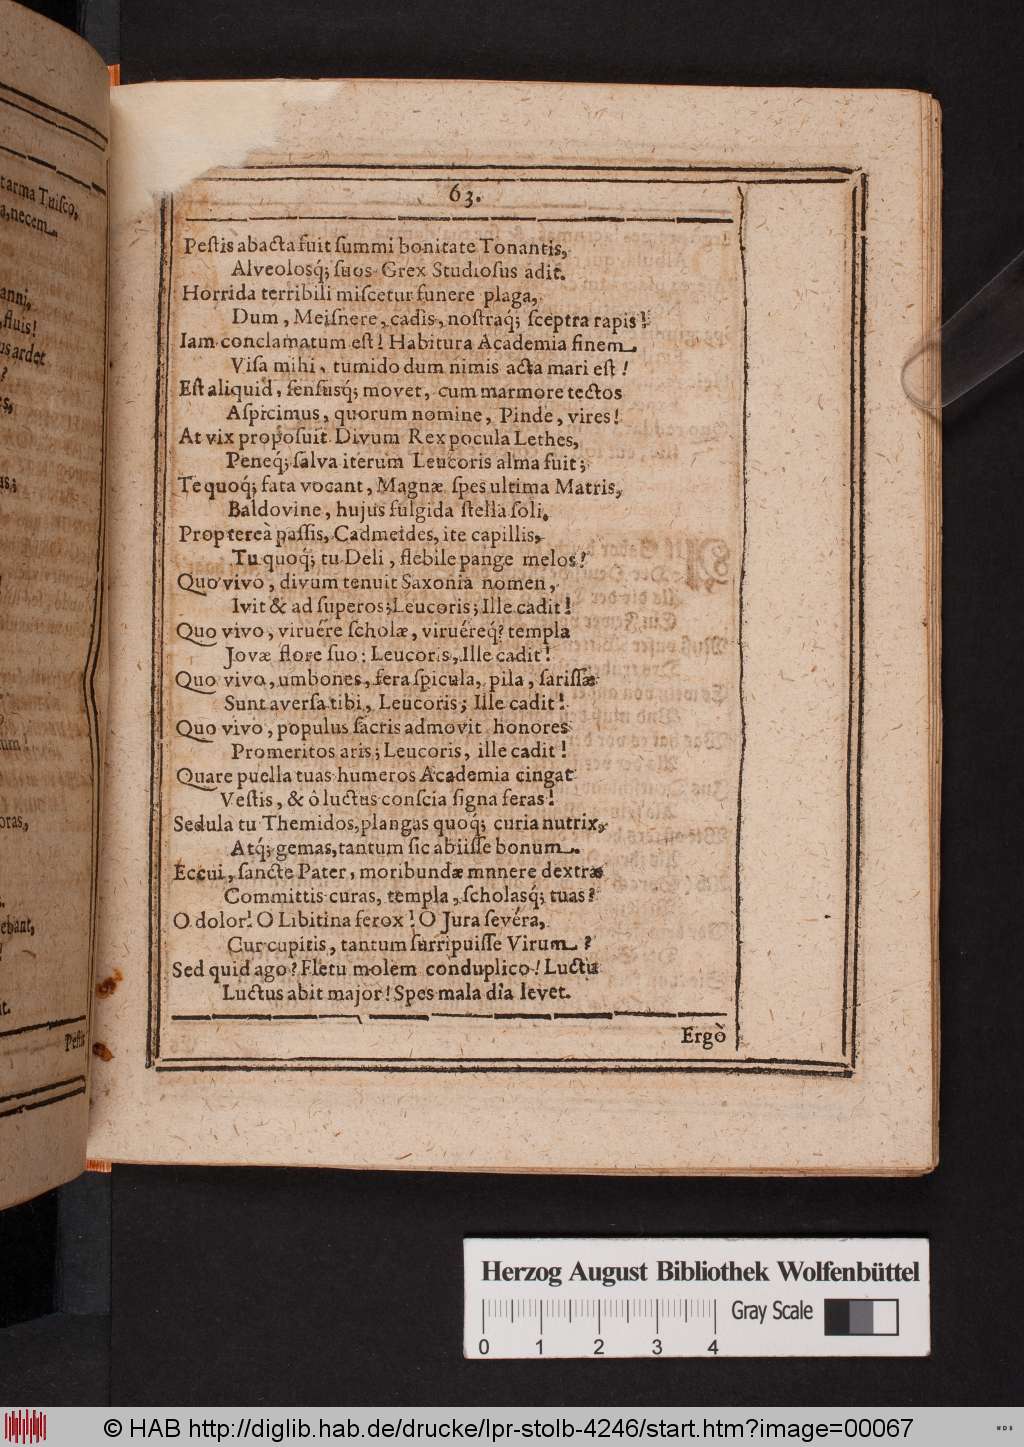 tarma Tuiſco,
a, necem
anni,
fluis!
us ardet
63.
Peſtis abacta fuit ſummi bonitate Tonantis,
Alveolosq́; ſuos Grex Studioſus adit.
Horrida terribili miſcetur funere plaga,
Dum, Meiſnere, cadis, noſtraq́; ſceptra rapis!
Iam conclamatum eſt! Habitura Academia finem
Viſa mihi, tumido dum nimis acta mari eſt!
Eſt aliquid, ſenſusq́; movet, cum marmore tectos
Aſpicimus, quorum nomine, Pinde, vires!
At vix propoſuit Divum Rex pocula Lethes,
Peneq́; ſalva iterum Leucoris alma fuit;
Te quoq́; fata vocant, Magnæ ſpes ultima Matris,
Baldovine, hujus fulgida ſtella ſoli.
Proptereà paſſis, Cadmeides, ite capillis,
Tu quoq́; tu Deli, flebile pange melos!
Quo vivo, divum tenuit Saxonia nomen,
Ivit & ad ſuperos; Leucoris; Ille cadit!
Quo vivo, viruére ſcholæ, viruéreq́; templa
Jovæ flore ſuo: Leucoris, Ille cadit!
Quo vivo, umbones, fera ſpicula, pila, ſariſſæ
Sunt averſa tibi, Leucoris; Ille cadit!
Quo vivo, populus ſacris admovit honores
Promeritos aris; Leucoris, ille cadit!
Quare puella tuas humeros Academia cingat
Veſtis, & ô luctus conſcia ſigna feras!
Sedula tu Themidos, plangas quoq́; curia nutrix,
Atq́; gemas, tantum ſic abiiſſe bonum.
Eccui, ſancte Pater, moribundæ mnnere dextræ
Committis curas, templa, ſcholasq́; tuas?
O dolor! O Libitina ferox! O Jura ſevéra,
Cur cupitis, tantum ſurripuiſſe Virum?
Sed quid ago? Fletu molem conduplico! Luctu
Luctus abit major! Spes mala dia levet.
Ergò
Peſtis
Herzog August Bibliothek Wolfenbüttel
Gray Scale
0 1 2 3 4
© HAB http://diglib.hab.de/drucke/lpr-stolb-4246/start.htm?image=00067